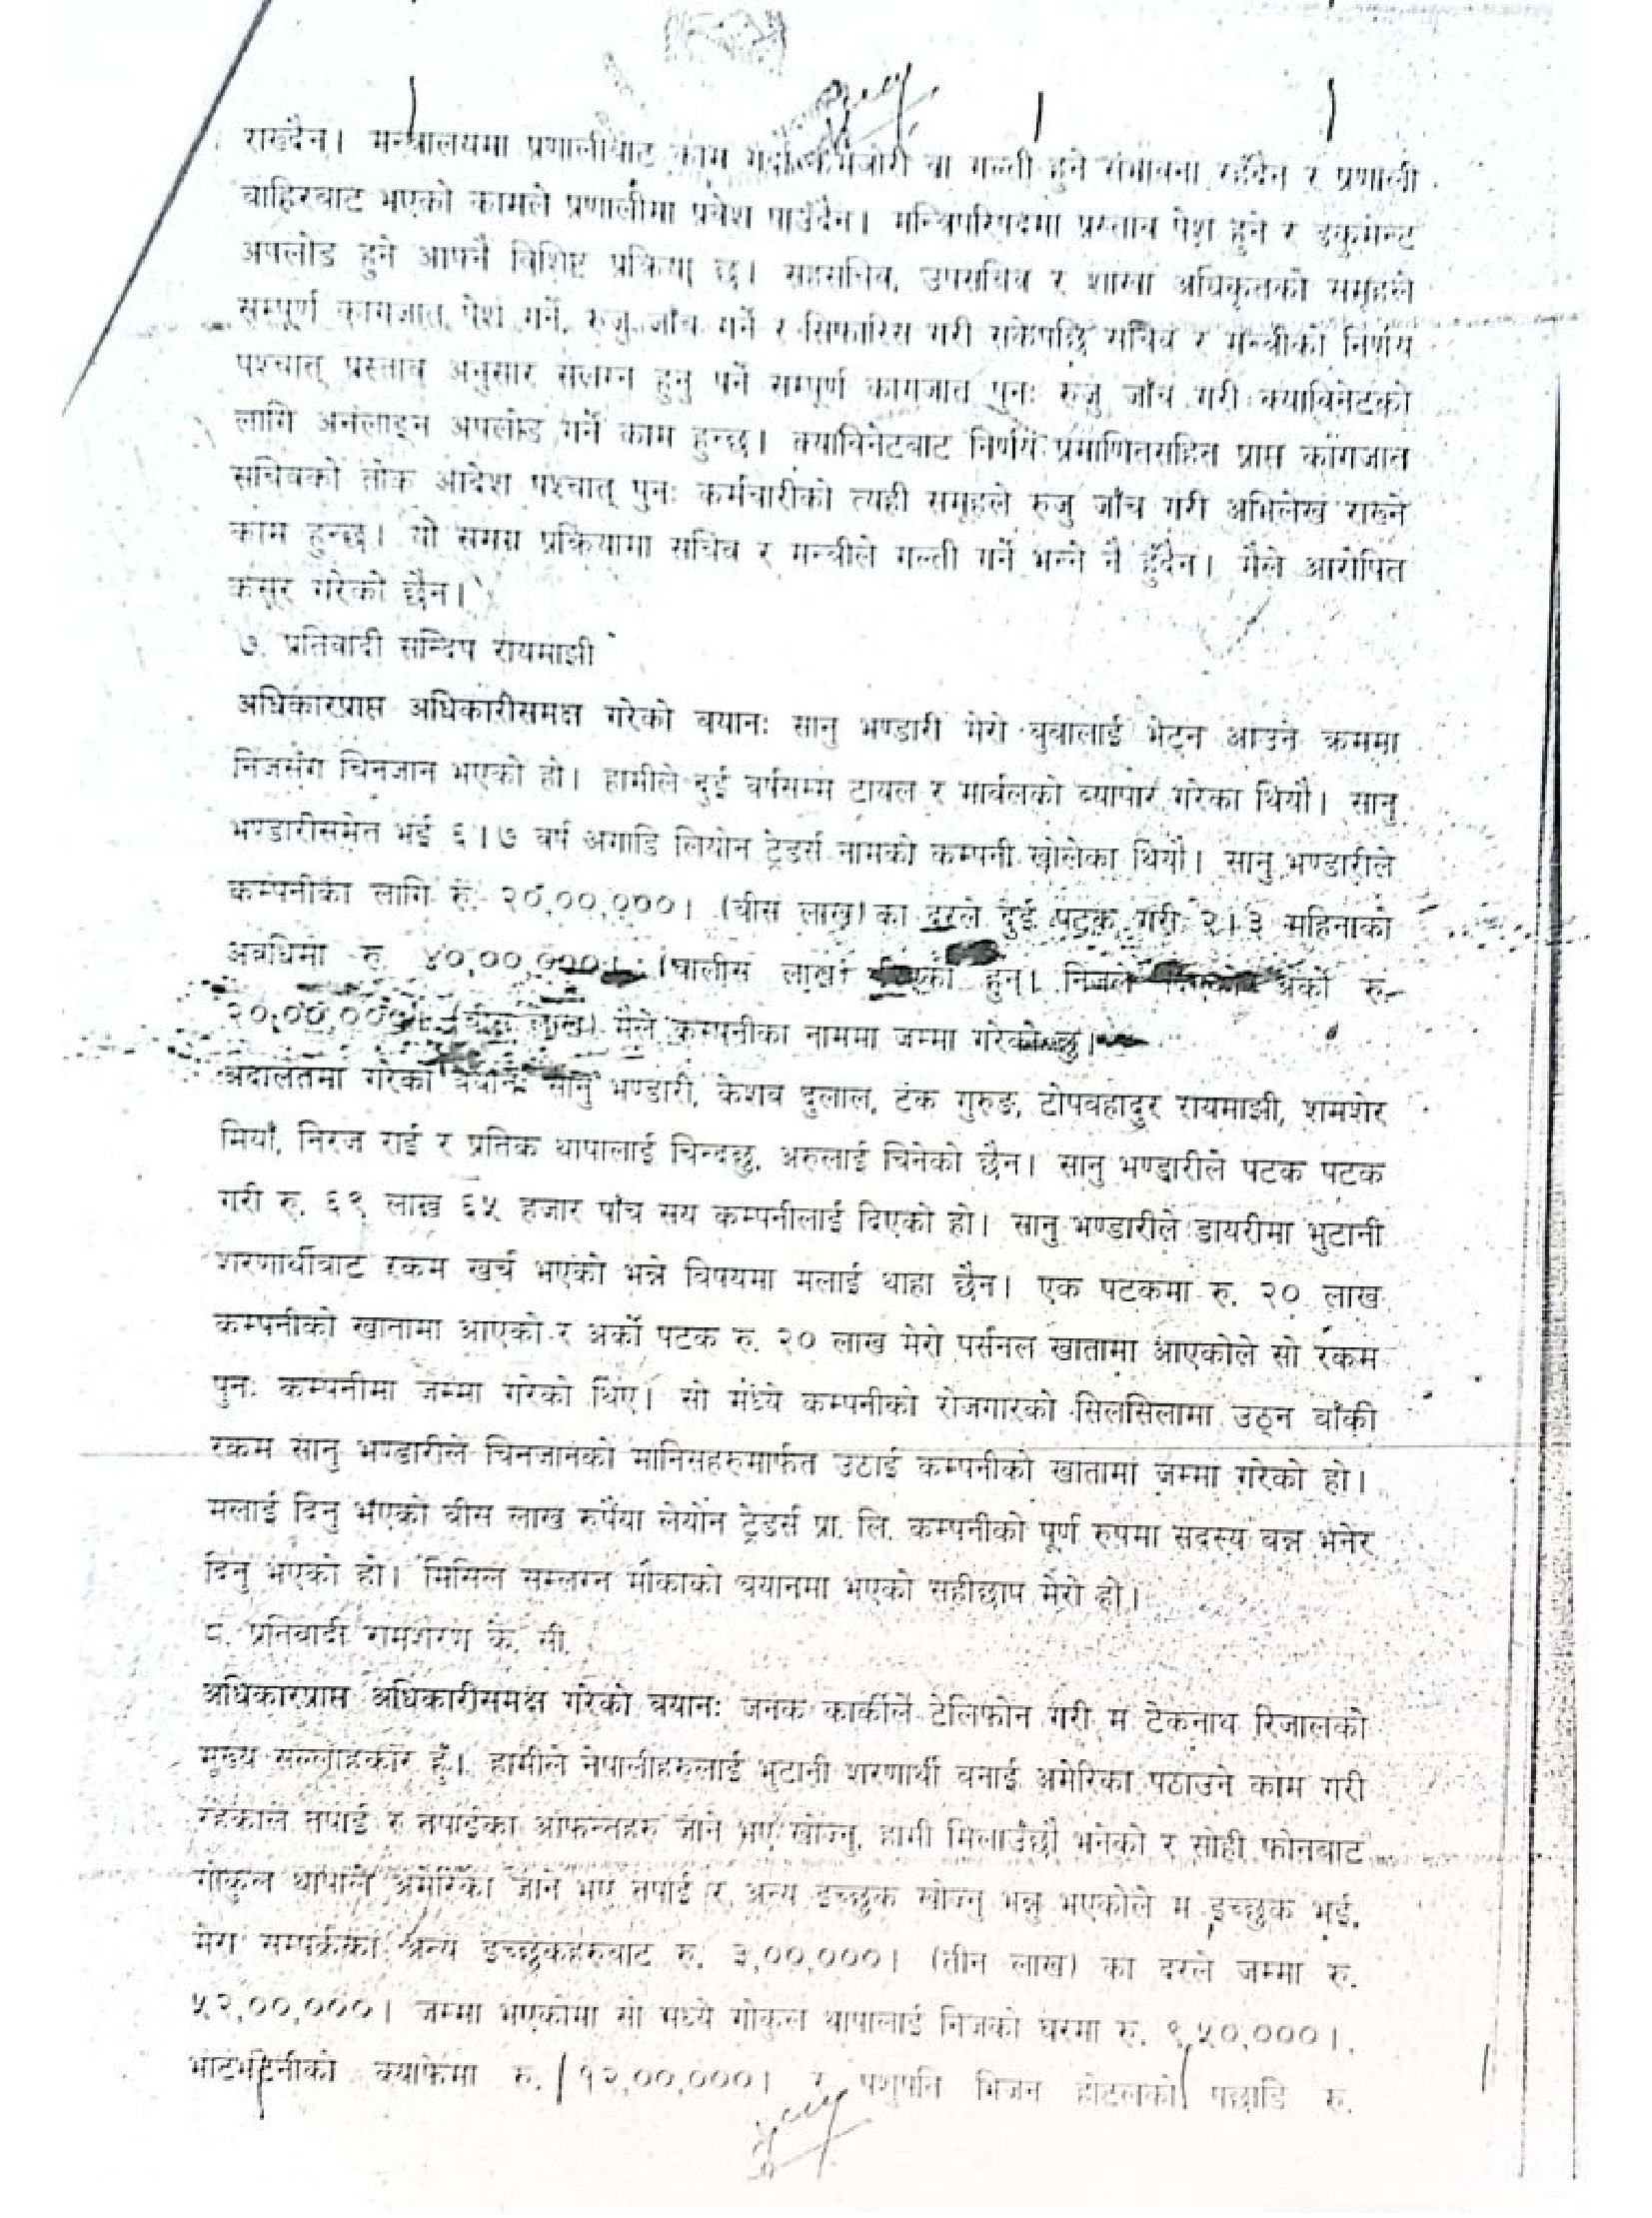 राख्दैन। मन्त्रालयमा प्रणालीबाट काम गर्दा कमजोरी वा गल्ती हुने संभावना रहँदैन र प्रणाली
बाहिरबाट भएको कामले प्रणालीमा प्रवेश पाउँदैन। मन्त्रिपरिषदमा प्रस्ताव पेश हुने र डकुमेन्ट
अपलोड हुने आफ्नै विशिष्ट प्रक्रिया छ। सहसचिव, उपसचिव र शाखा अधिकृतको समूहले
सम्पूर्ण कागजात पेश गर्ने, रुजु जाँच गर्ने र सिफारिस गरी सकेपछि सचिव र मन्त्रीको निर्णय
पश्चात् प्रस्ताव अनुसार संलग्न हुनु पर्ने सम्पूर्ण कागजात पुनः रुजु जाँच गरी क्याबिनेटको
लागि अनलाइन अपलोड गर्ने काम हुन्छ। क्याबिनेटबाट निर्णय प्रमाणितसहित प्राप्त कागजात
सचिवको तोक आदेश पश्चात् पुनः कर्मचारीको त्यही समूहले रुजु जाँच गरी अभिलेख राख्ने
काम हुन्छ। यो समग्र प्रक्रियामा सचिव र मन्त्रीले गल्ती गर्ने भन्ने नै हुँदैन। मैले आरोपित
कसूर गरेको छैन।
७. प्रतिवादी सन्दिप रायमाझी
अधिकारप्राप्त अधिकारीसमक्ष गरेको बयानः सानु भण्डारी मेरो बुवालाई भेट्न आउने क्रममा
निजसँग चिनजान भएको हो। हामीले दुई वर्षसम्म टायल र मार्बलको व्यापार गरेका थियौं। सानु
भण्डारीसमेत भई ६।७ वर्ष अगाडि लियोन ट्रेडर्स नामको कम्पनी खोलेका थियौं। सानु भण्डारीले
कम्पनीका लागि रु. २०,००,०००। (बीस लाख) का दरले दुई पटक गरी २।३ महिनाको
अवधिमा रु. ४०,००,०००। (चालीस लाख) दिएका हुन्। निजले दिएको अर्को रु.
२०,००,०००। (बीस लाख) मैले कम्पनीका नाममा जम्मा गरेको छु।
अदालतमा गरेको बयानः सानु भण्डारी, केशव दुलाल, टंक गुरुङ, टोपबहादुर रायमाझी, शमशेर
मियाँ, निरज राई र प्रतिक थापालाई चिन्दछु, अरुलाई चिनेको छैन। सानु भण्डारीले पटक पटक
गरी रु. ६९ लाख ६५ हजार पाँच सय कम्पनीलाई दिएको हो। सानु भण्डारीले डायरीमा भुटानी
शरणार्थीबाट रकम खर्च भएको भन्ने विषयमा मलाई थाहा छैन। एक पटकमा रु. २० लाख
कम्पनीको खातामा आएको र अर्को पटक रु. २० लाख मेरो पर्सनल खातामा आएकोले सो रकम
पुनः कम्पनीमा जम्मा गरेको थिए। सो मध्ये कम्पनीको रोजगारको सिलसिलामा उठ्न बाँकी
रकम सानु भण्डारीले चिनजानको मानिसहरुमार्फत उठाई कम्पनीको खातामा जम्मा गरेको हो।
मलाई दिनु भएको बीस लाख रुपैंया लेयोन ट्रेडर्स प्रा. लि. कम्पनीको पूर्ण रुपमा सदस्य बन्न भनेर
दिनु भएको हो। मिसिल सम्लग्न मौकाको बयानमा भएको सहीछाप मेरो हो।
८. प्रतिवादी रामशरण के. सी.
अधिकारप्राप्त अधिकारीसमक्ष गरेको बयानः जनक कार्कीले टेलिफोन गरी म टेकनाथ रिजालको
मुख्य सल्लाहकार हुँ। हामीले नेपालीहरुलाई भुटानी शरणार्थी बनाई अमेरिका पठाउने काम गरी
रहेकाले तपाई र तपाईका आफन्तहरु जाने भए खोज्नु, हामी मिलाउँछौं भनेको र सोही फोनबाट
गोकुल थापाले अमेरिका जाने भए तपाई र अन्य इच्छुक खोज्नु भन्नु भएकोले म इच्छुक भई,
मेरा सम्पर्कका अन्य इच्छुकहरुबाट रु. ३,००,०००। (तीन लाख) का दरले जम्मा रु.
५२,००,०००। जम्मा भएकोमा सो मध्ये गोकुल थापालाई निजको घरमा रु. ९,५०,०००।,
भाटभटेनीको क्याफेमा रु. १२,००,०००। र पशुपति भिजन होटलको पछाडि रु.